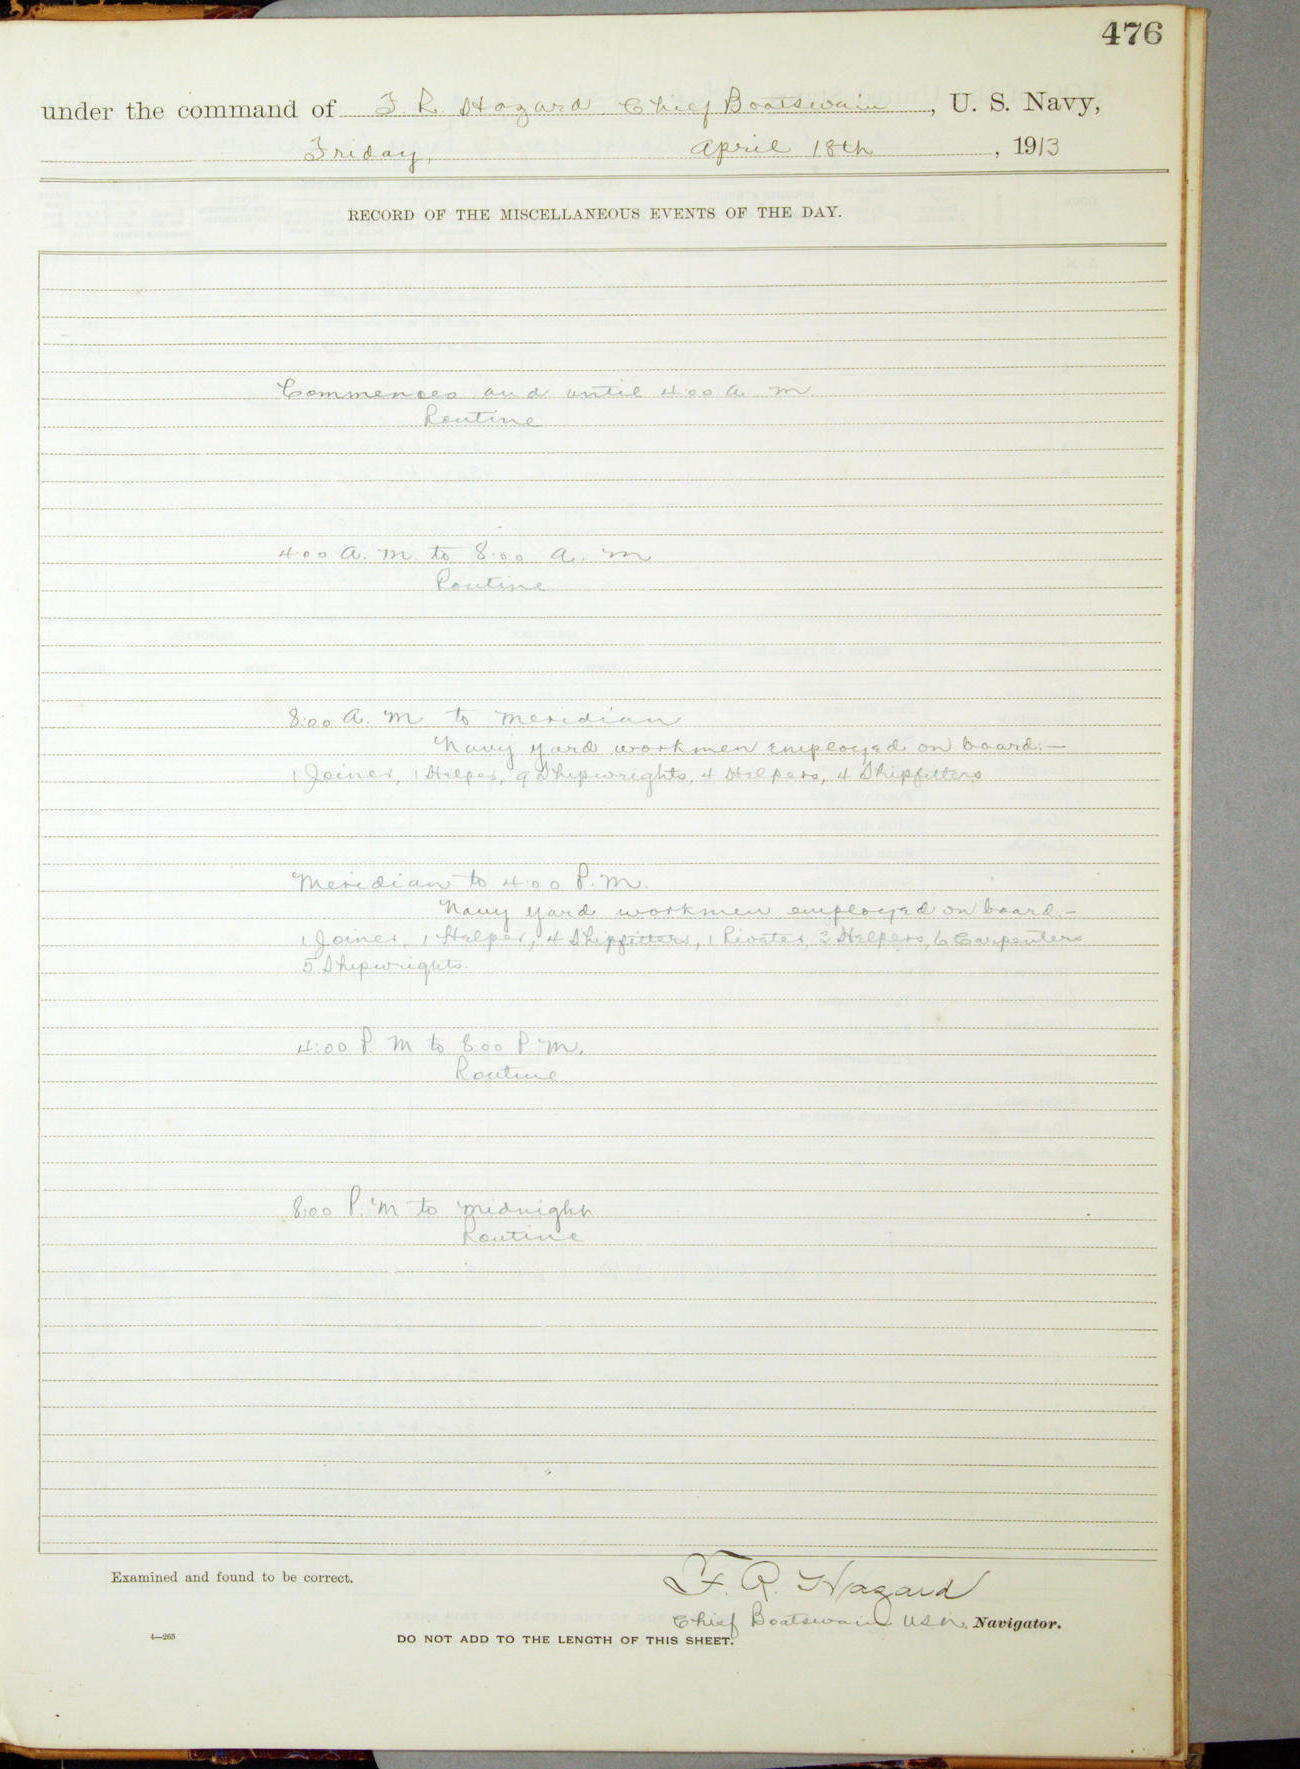 476
under the command of F. R. Hazard Chief Boatswain, U. S. Navy,
Friday, April 18th, 1913
RECORD OF THE MISCELLANEOUS EVENTS OF THE DAY.
Commences and until 4:00 A. M.
Routine
4:00 A. M. to 8:00 A. M
Routine
8:00 A. M to Meridian
Navy yard workmen employed on board:—
1 Joiner, 1 Helper, 9 Shipwrights, 4 Helpers, 4 Shipfitters
Meridian to 4:00 P. M.
Navy yard workmen employed on board:—
1 Joiner, 1 Helper, 4 Shipfitters, 1 Riveter, 3 Helpers, 6 Carpenters
5 Shipwrights.
4:00 P. M to 8:00 P M.
Routine
8:00 P. M to Midnight
Routine
Examined and found to be correct.
F. R. Hazard
Chief Boatswain U S N. Navigator.
4—265
DO NOT ADD TO THE LENGTH OF THIS SHEET.